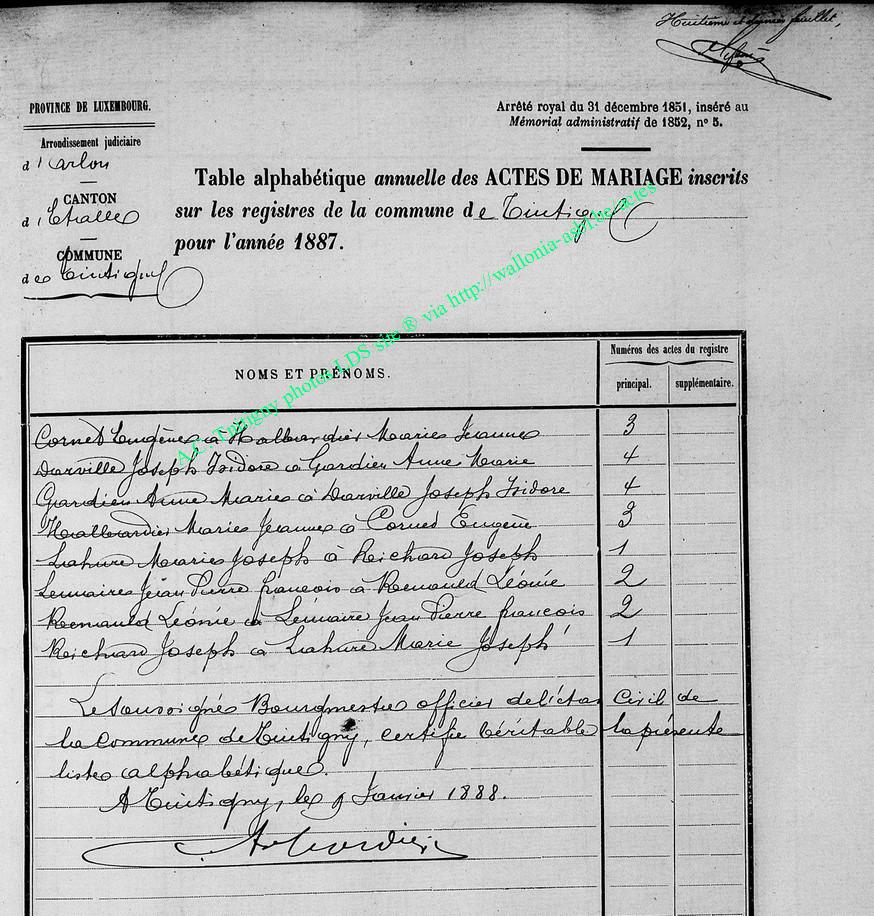 Huitième et dernier feuillet,
PROVINCE DE LUXEMBOURG.
Arrêté royal du 31 décembre 1851, inséré au
Mémorial administratif de 1852, n° 5.
Arrondissement judiciaire
d'Arlon
CANTON
d'Etalle
COMMUNE
de Tintigny
Table alphabétique annuelle des ACTES DE MARIAGE inscrits
sur les registres de la commune de Tintigny
pour l'année 1887.
A.C. Tintigny photos LDS site ® via http://wallonia-asbl.be/actes
NOMS ET PRÉNOMS.
Numéros des actes du registre
principal. supplémentaire.
Cornet Eugène à Halbardier Marie Jeanne 3
Darville Joseph Isidore à Gardien Anne Marie 4
Gardien Anne Marie à Darville Joseph Isidore 4
Halbardier Marie Jeanne à Cornet Eugène 3
Lahure Marie Joseph à Reichard Joseph 1
Lemaire Jean Pierre françois à Renauld Léonie 2
Renauld Léonie à Lemaire Jean Pierre françois 2
Reichard Joseph à Lahure Marie Joseph 1
Le soussigné Bourgmestre officier de l'état Civil de
la commune de Tintigny, certifie véritable la présente
liste alphabétique.
A Tintigny, le 9 Janvier 1888.